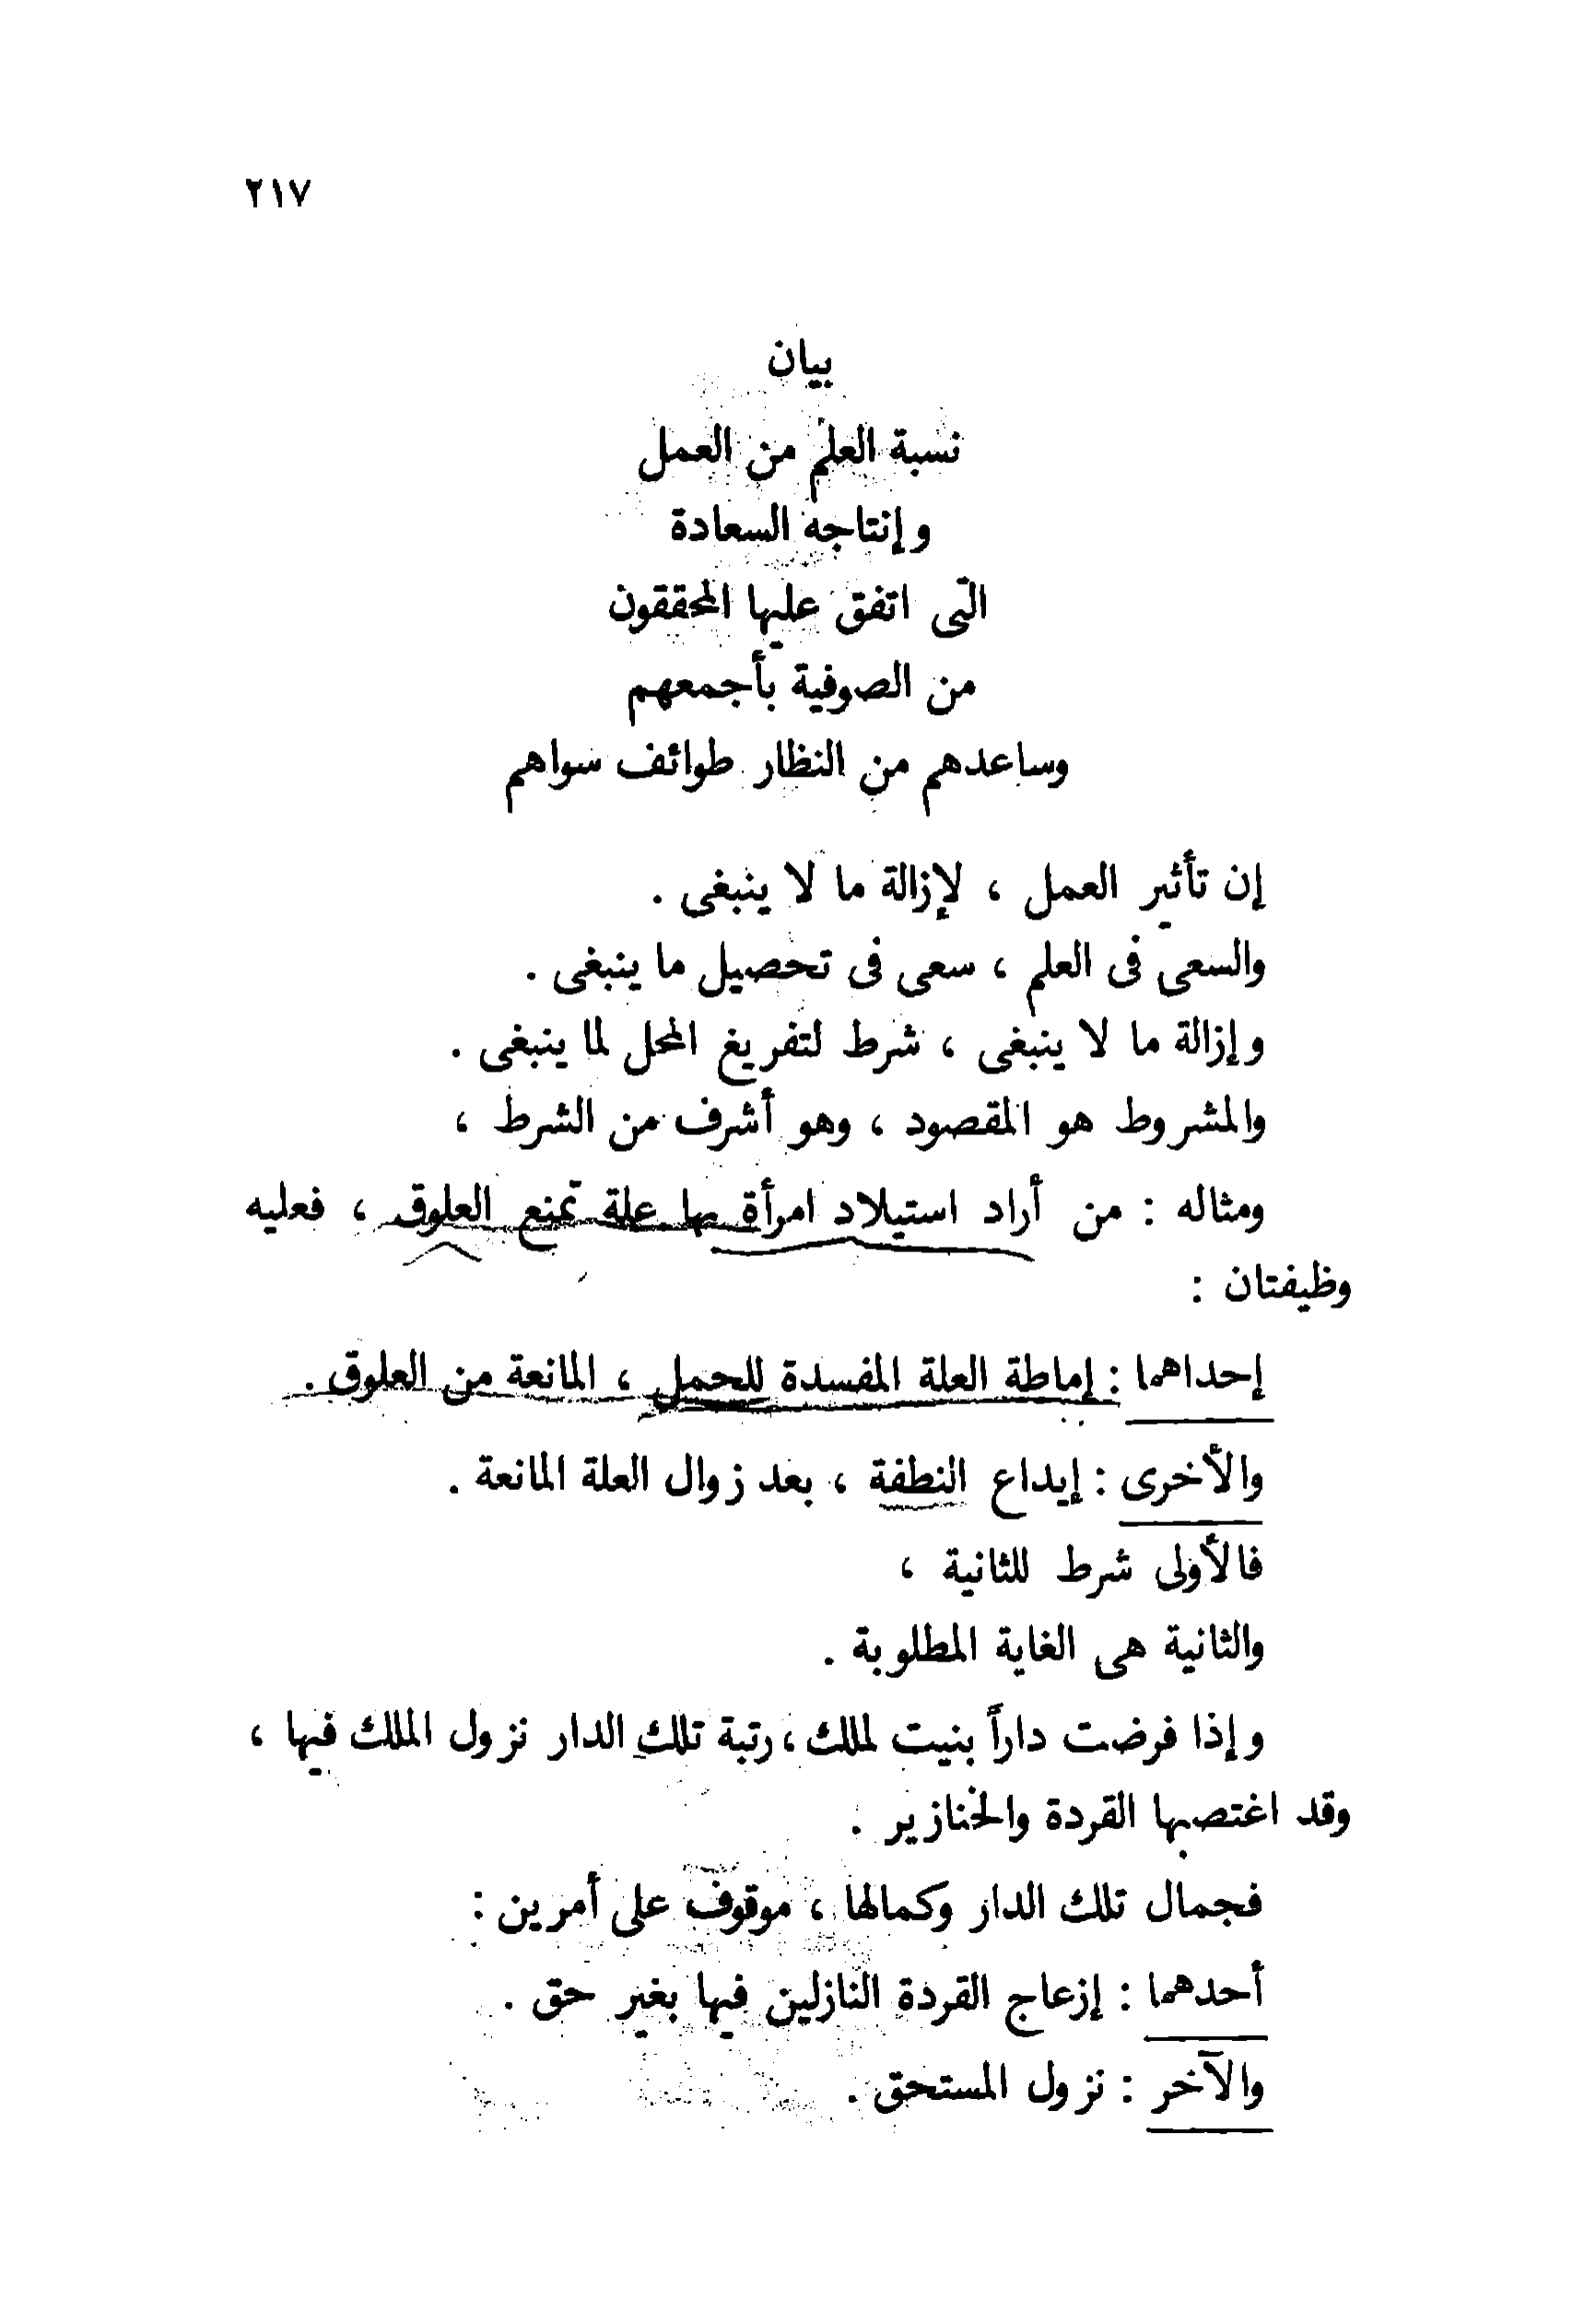 ٢١٧
بيان
نسبة العلم من العمل
وإنتاجه السعادة
التى اتفق عليها المحققون
من الصوفية بأجمعهم
وساعدهم من النظار طوائف سواهم
إن تأثير العمل ، لإزالة ما لا ينبغى .
والسعى فى العلم ، سعى فى تحصيل ما ينبغى .
وإزالة ما لا ينبغى ، شرط لتفريغ المحل لما ينبغى .
والمشروط هو المقصود ، وهو أشرف من الشرط ،
ومثاله : من أراد استيلاد امرأة بها علة تمنع العلوق ، فعليه
وظيفتان :
إحداهما : إماطة العلة المفسدة للحمل ، المانعة من العلوق .
والأخرى : إيداع النطفة ، بعد زوال العلة المانعة .
فالأولى شرط للثانية ،
والثانية هى الغاية المطلوبة .
وإذا فرضت داراً بنيت لملك ، رتبة تلك الدار نزول الملك فيها ،
وقد اغتصبها القردة والخنازير .
فجمال تلك الدار وكمالها ، موقوف على أمرين :
أحدهما : إزعاج القردة النازلين فيها بغير حق .
والآخر : نزول المستحق .